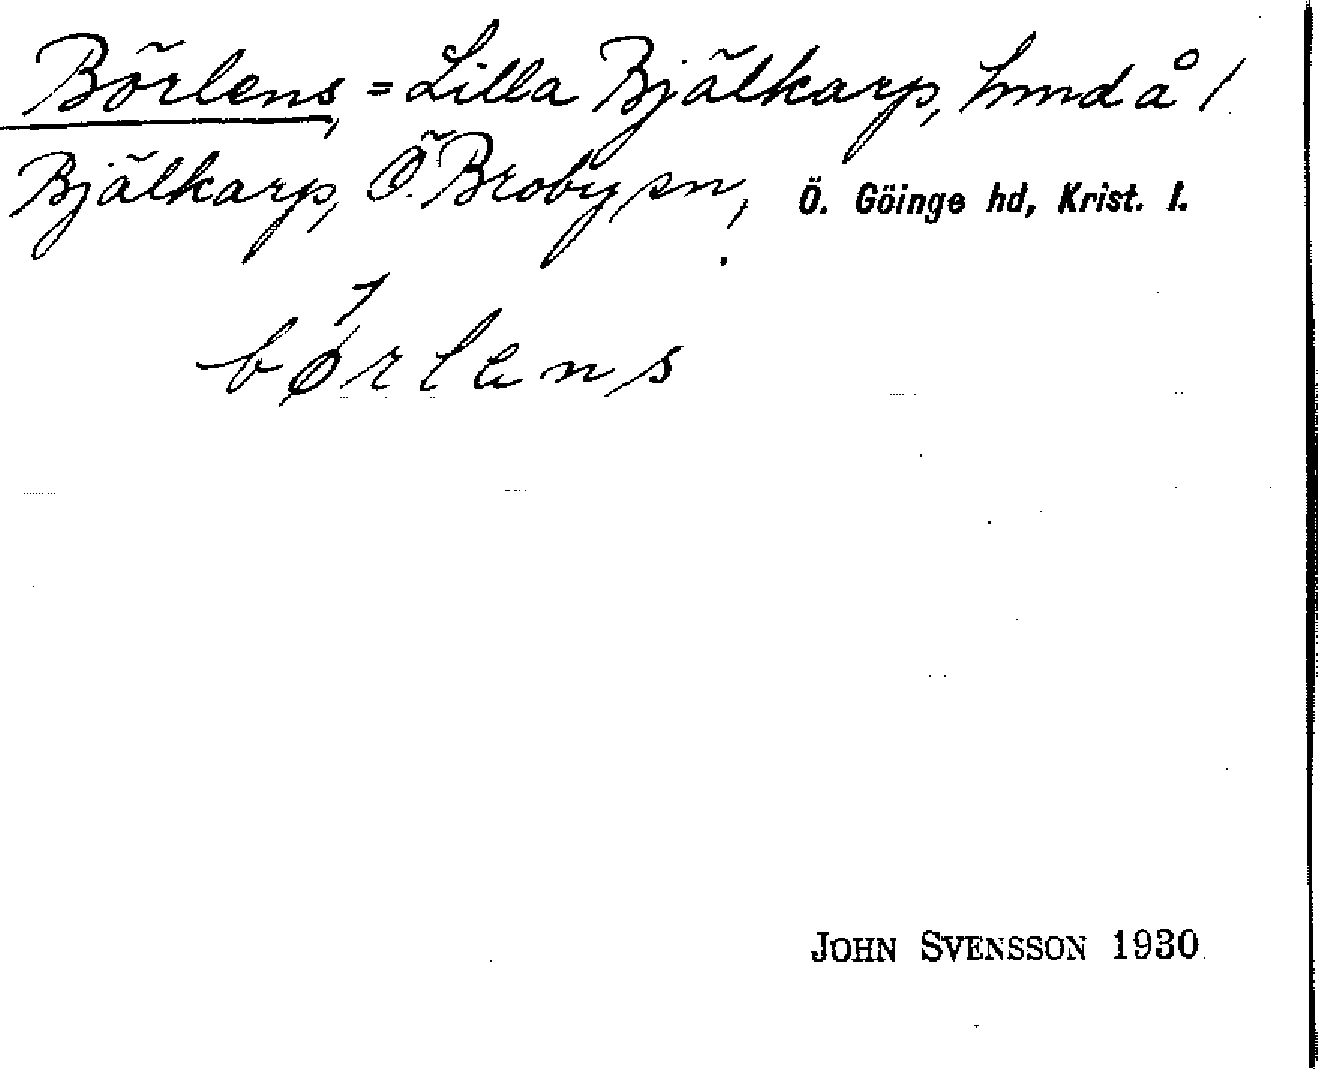 Börlens, = Lilla Bjälkarp, hmd å 1
Bjälkarp, Ö. Broby sn, Ö. Göinge hd, Krist. l.
bǿrlens
JOHN SVENSSON 1930